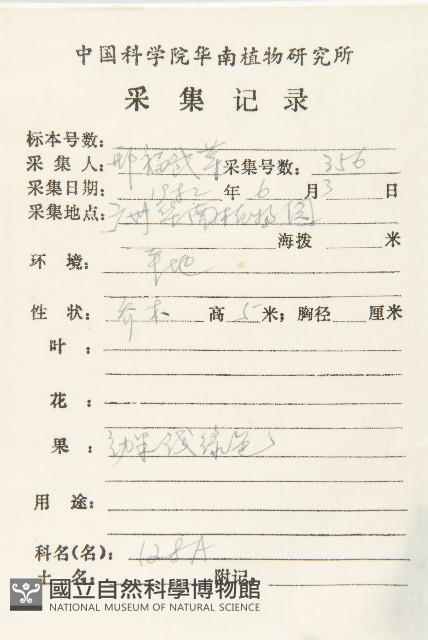 中国科学院华南植物研究所
采集记录
标本号数:
采集人: 邢福武等 采集号数: 356
采集日期: 1982 年 6 月 3 日
采集地点: 广州华南植物园
海拨 米
环境: 平地
性状: 乔木 高 5 米; 胸径 厘米
叶:
花:
果: 幼果浅绿色
用途:
科名(名): 128A
土名: 附记:
國立自然科學博物館
NATIONAL MUSEUM OF NATURAL SCIENCE